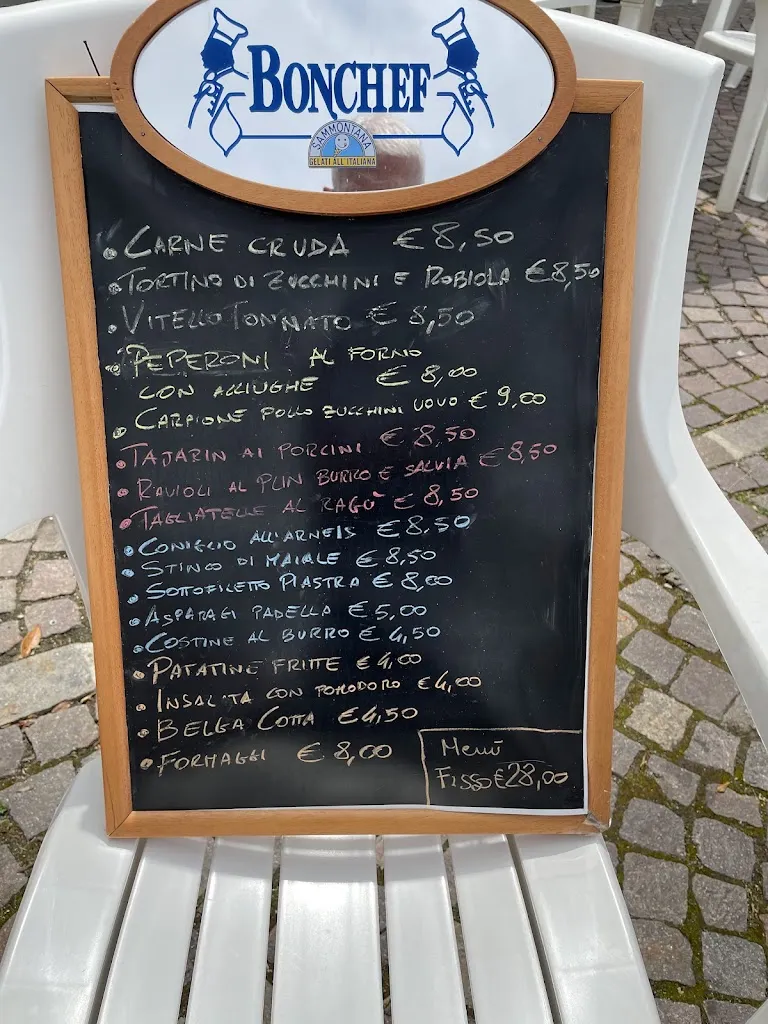 BONCHEF
SAMMONTANA
GELATI ALL'ITALIANA
• CARNE CRUDA €8,50
• TORTINO DI ZUCCHINI E ROBIOLA €8,50
• VITELLO TONNATO € 8,50
• PEPERONI AL FORNO
CON ACCIUGHE € 8,00
• CARPIONE POLLO ZUCCHINI UOVO € 9,00
• TAJARIN AI PORCINI € 8,50
• RAVIOLI AL PLIN BURRO E SALVIA € 8,50
• TAGLIATELLE AL RAGÙ € 8,50
• CONIGLIO ALL'ARNEIS €8,50
• STINCO DI MAIALE €8,50
• SOTTOFILETTO PIASTRA € 8,00
• ASPARAGI PADELLA €5,00
• COSTINE AL BURRO € 4,50
• PATATINE FRITTE €4,00
• INSAL'TA CON POMODORO €4,00
• BELGA COTTA €4,50
• FORMAGGI € 8,00
Menù
FISSO €28,00